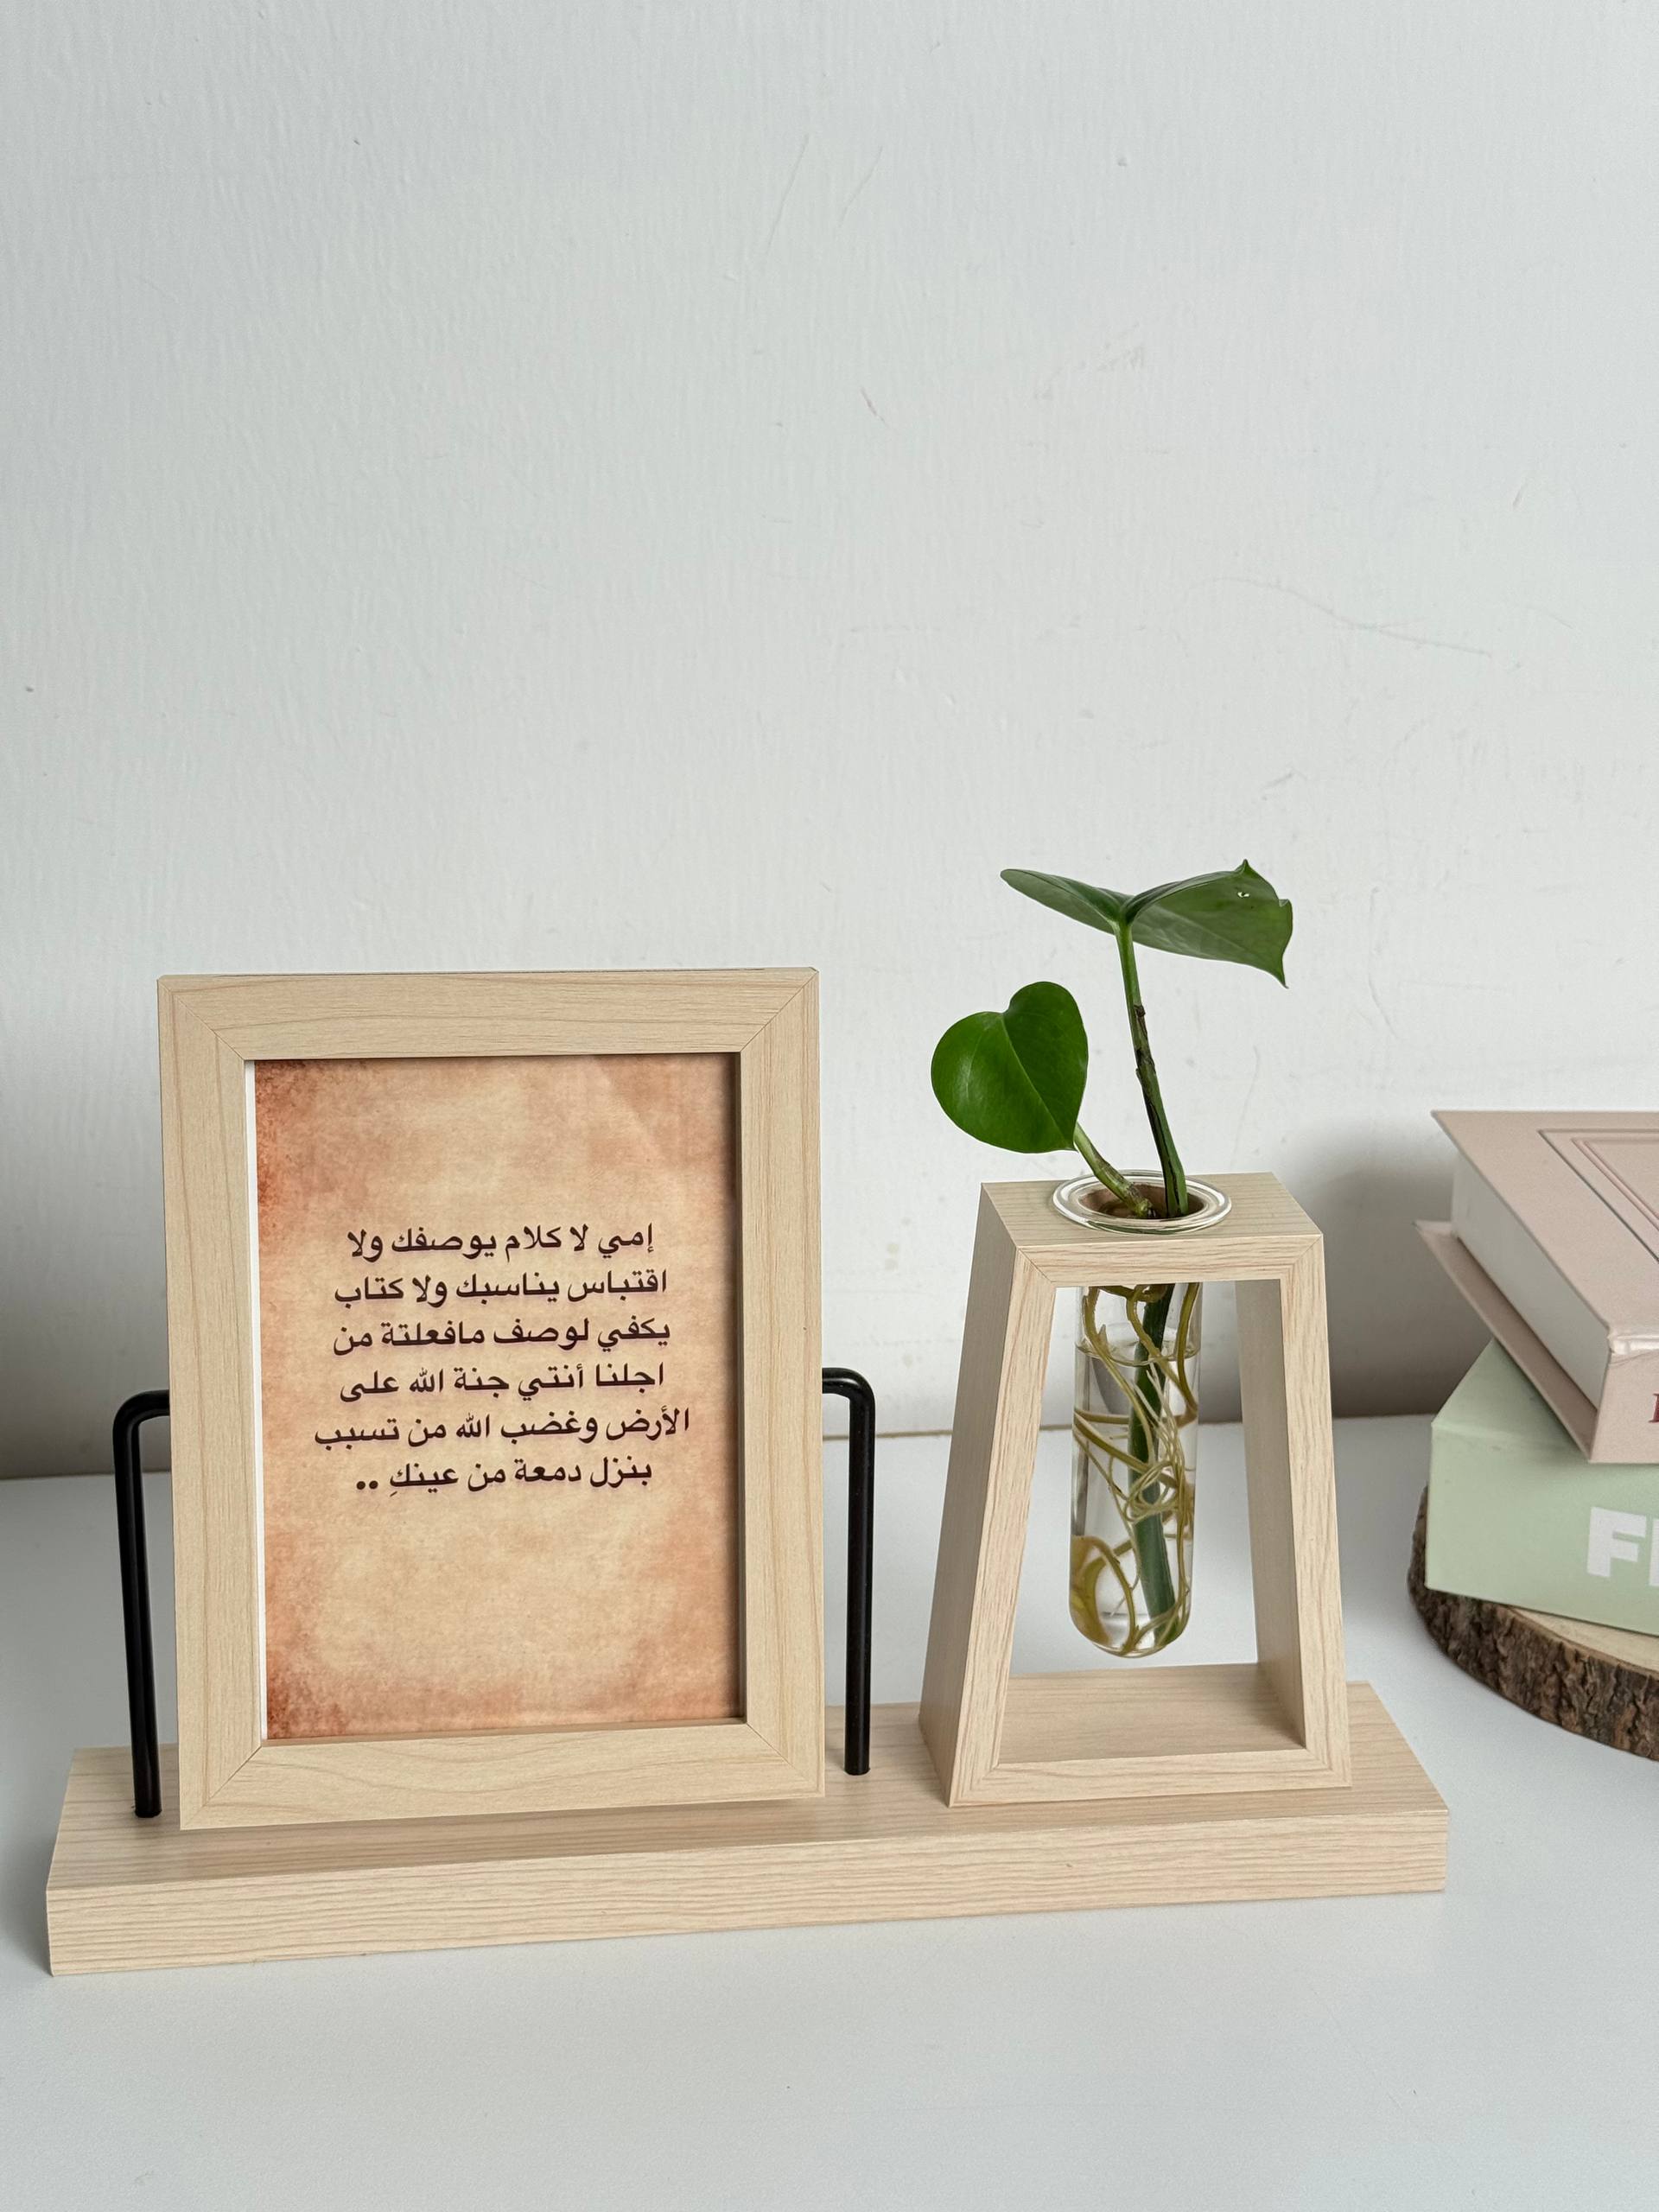 إمي لا كلام يوصفك ولا
اقتباس يناسبك ولا كتاب
يكفي لوصف مافعلتة من
اجلنا أنتي جنة الله على
الأرض وغضب الله من تسبب
بنزل دمعة من عينكِ ..